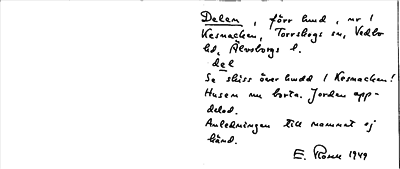 Delen, förr hmd, nr 1
Kesnacken, Torrskogs sn, Vedbo
hd, Älvsborgs l.
del
Se skiss över hmdd 1 Kesnacken!
Husen nu borta. Jorden upp-
delad.
Anledningen till namnet ej
känd.
E. Rosen 1949